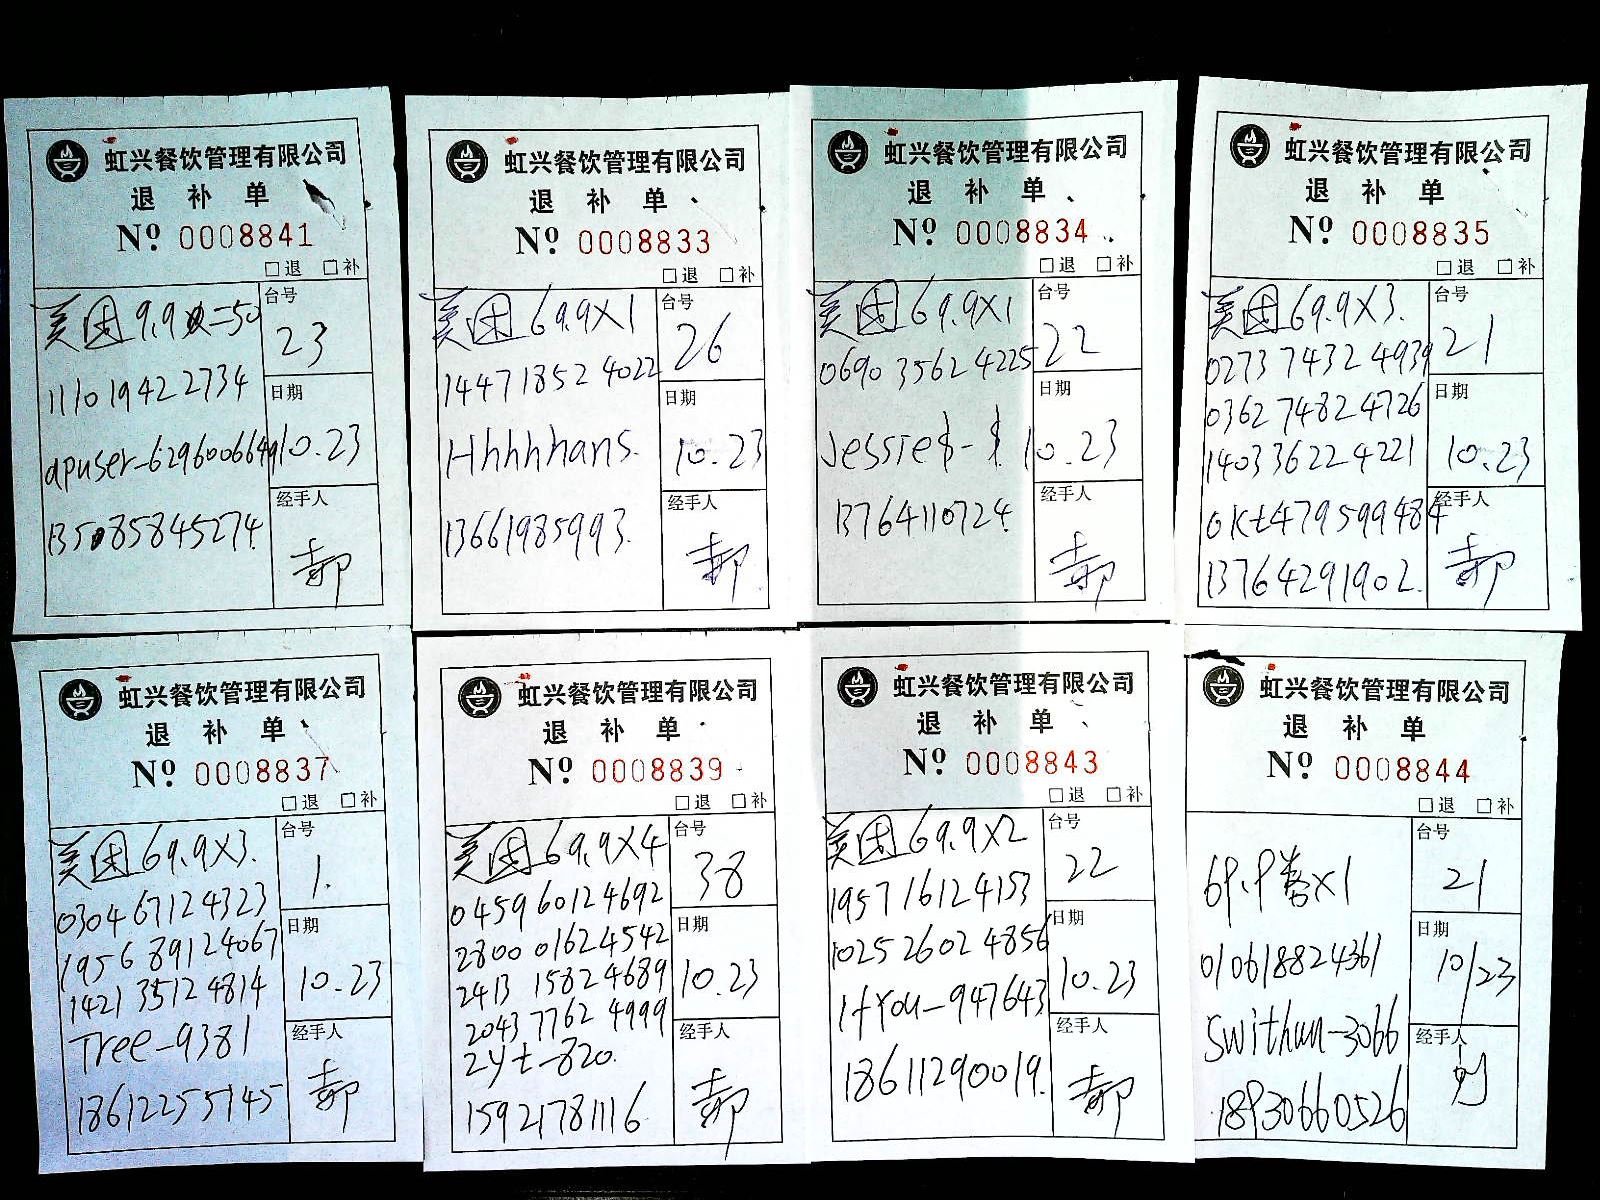 虹兴餐饮管理有限公司
退 补 单
Nº 0008841
□退 □补
美团 9.9 =50
台号
23
1110 1942 2734
日期
apuser-6296006649
10.23
经手人
13585845274
郝
虹兴餐饮管理有限公司
退 补 单
Nº 0008833
□退 □补
美团 69.9X1
台号
26
1447 1852 4022
日期
Hhhhhans.
10.23
经手人
13661985993.
郝
虹兴餐饮管理有限公司
退 补 单
Nº 0008834
□退 □补
美团 69.9X1
台号
22
0690 3562 4225
日期
Jessie$-$
10.23
经手人
13764110724.
郝
虹兴餐饮管理有限公司
退 补 单
Nº 0008835
□退 □补
美团 69.9X3.
台号
21
0273 7432 4939
0362 7482 4726
日期
1403 3622 4221
10.23
经手人
okt479599484
13764291902.
郝
虹兴餐饮管理有限公司
退 补 单
Nº 0008837
□退 □补
美团 69.9X3.
台号
1.
0304 6712 4323
1956 8912 4067
日期
1421 3512 4814
10.23
Tree-9381
经手人
18612255145
郝
虹兴餐饮管理有限公司
退 补 单
Nº 0008839
□退 □补
美团 69.9X4
台号
38
0459 6012 4692
2800 0162 4542
日期
2413 1582 4689
10.23
2043 7762 4999
zyt-820.
经手人
15921781116
郝
虹兴餐饮管理有限公司
退 补 单
Nº 0008843
□退 □补
美团 69.9X2
台号
22
1957 1612 4153
1025 2602 4856
日期
IfYou-947643
10.23
经手人
18611290019.
郝
虹兴餐饮管理有限公司
退 补 单
Nº 0008844
□退 □补
台号
69.9券X1
21
日期
010618824361
10/23
swithun-3066
经手人
18930660526